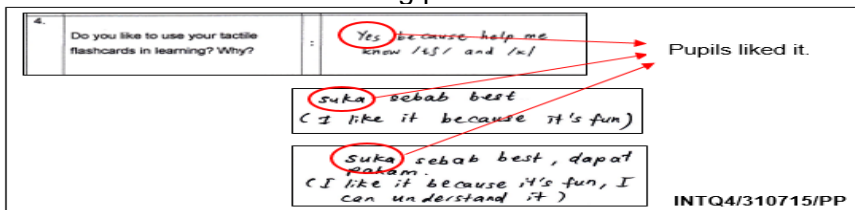 4.
Do you like to use your tactile
flashcards in learning? Why?
:
Yes because help me
know /tʃ/ and /x/
Pupils liked it.
suka sebab best
(I like it because it's fun)
suka sebab best, dapat
paham.
(I like it because it's fun, I
can understand it)
INTQ4/310715/PP